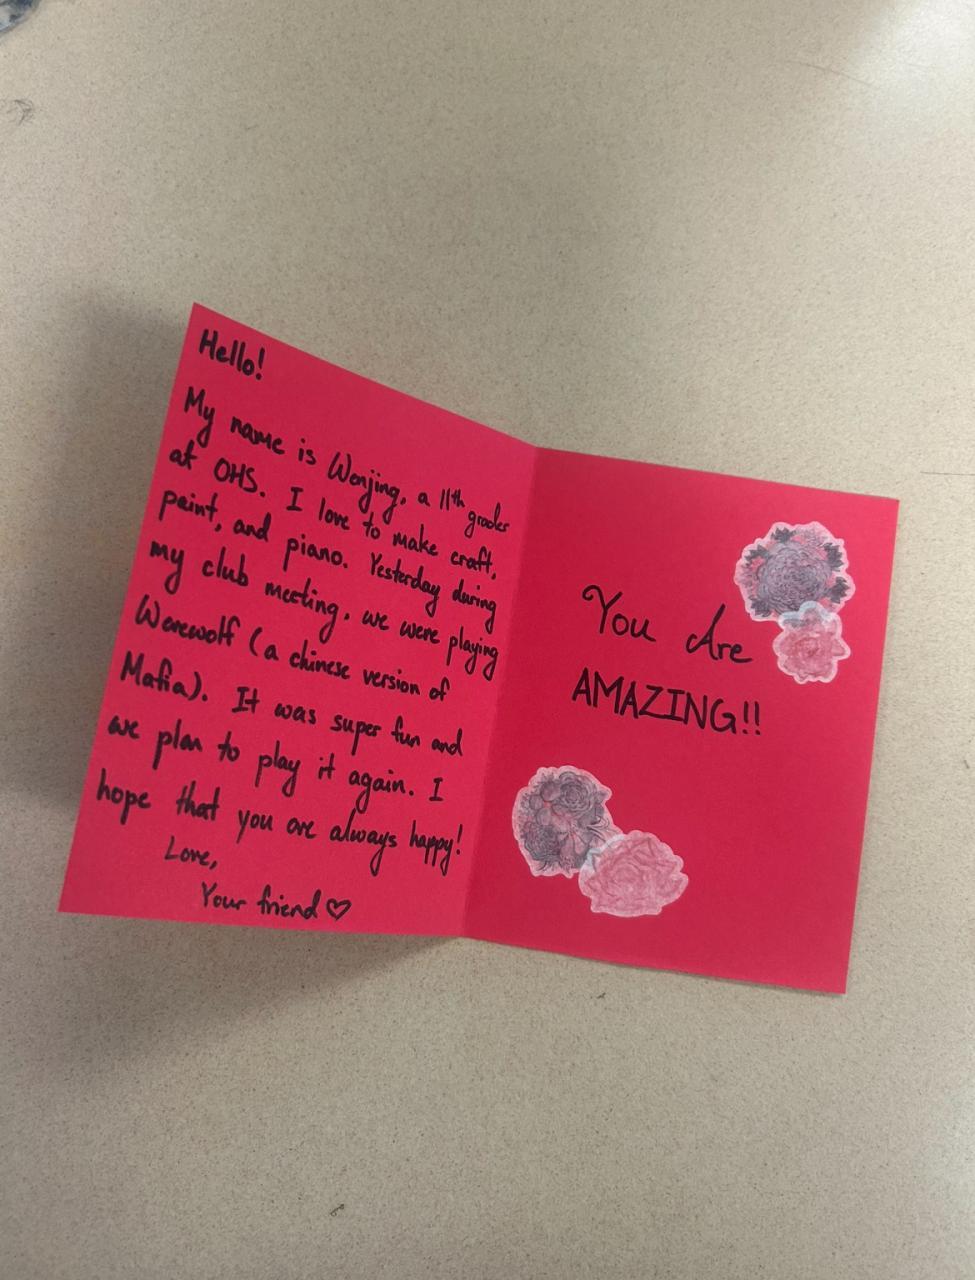 Hello!
My name is Wenjing, a 11th grader
at OHS. I love to make craft,
paint, and piano. Yesterday during
my club meeting, we were playing
Werewolf (a chinese version of
Mafia). It was super fun and
we plan to play it again. I
hope that you are always happy!
Love,
Your friend ♡
You Are
AMAZING!!